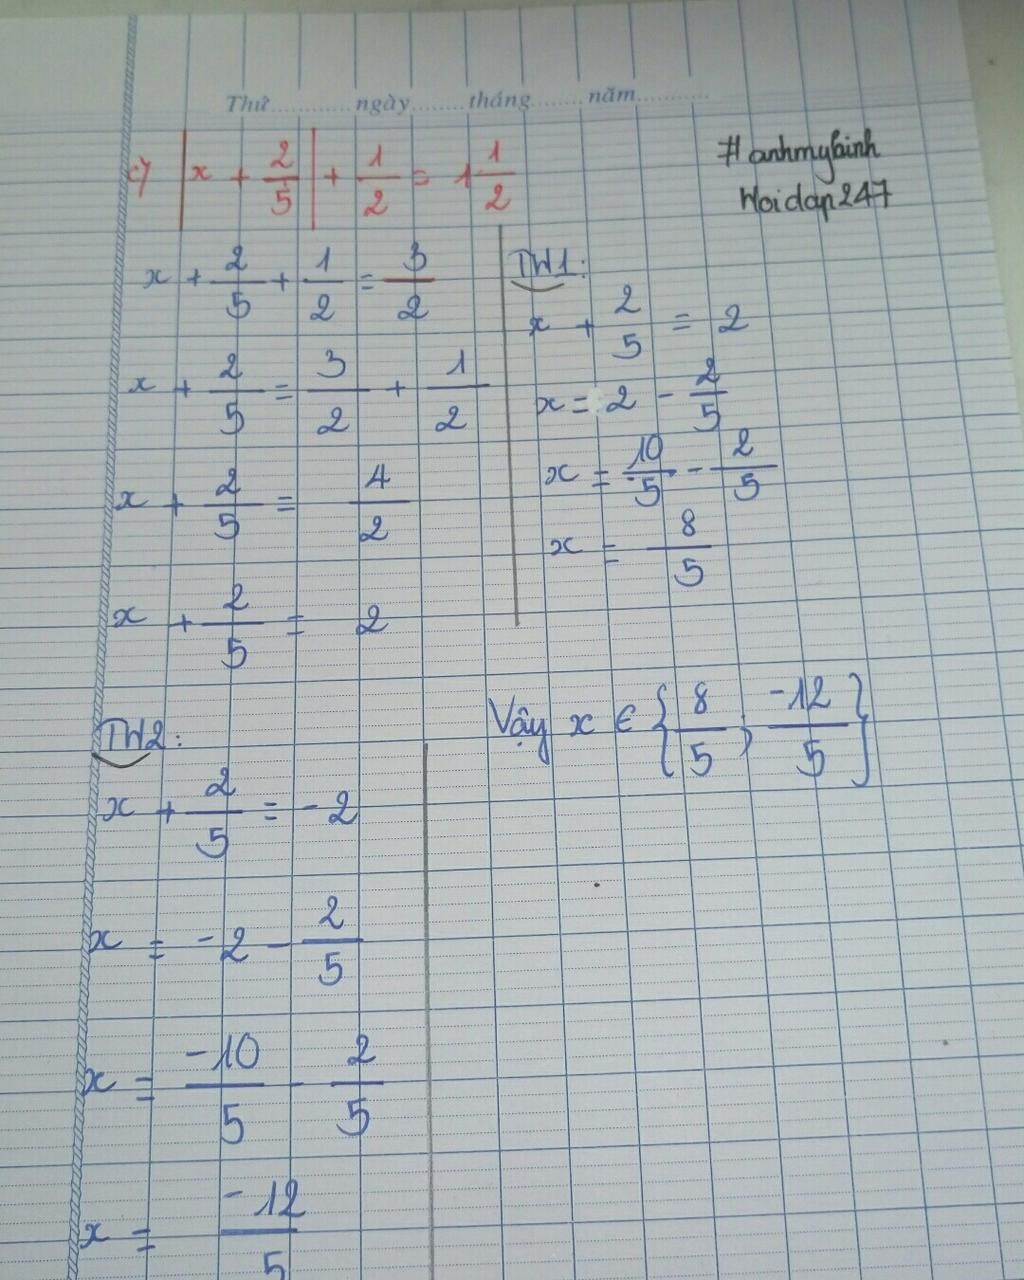 Thứ............ngày........tháng.......năm...........
#anhmybinh
Hoidap247
c) |x + 2/5| + 1/2 = 1 1/2
x + 2/5 + 1/2 = 3/2
x + 2/5 = 3/2 + 1/2
x + 2/5 = 4/2
x + 2/5 = 2
TH1:
x + 2/5 = 2
x = 2 - 2/5
x = 10/5 - 2/5
x = 8/5
TH2:
x + 2/5 = -2
x = -2 - 2/5
x = -10/5 - 2/5
x = -12/5
Vậy x ∈ {8/5; -12/5}